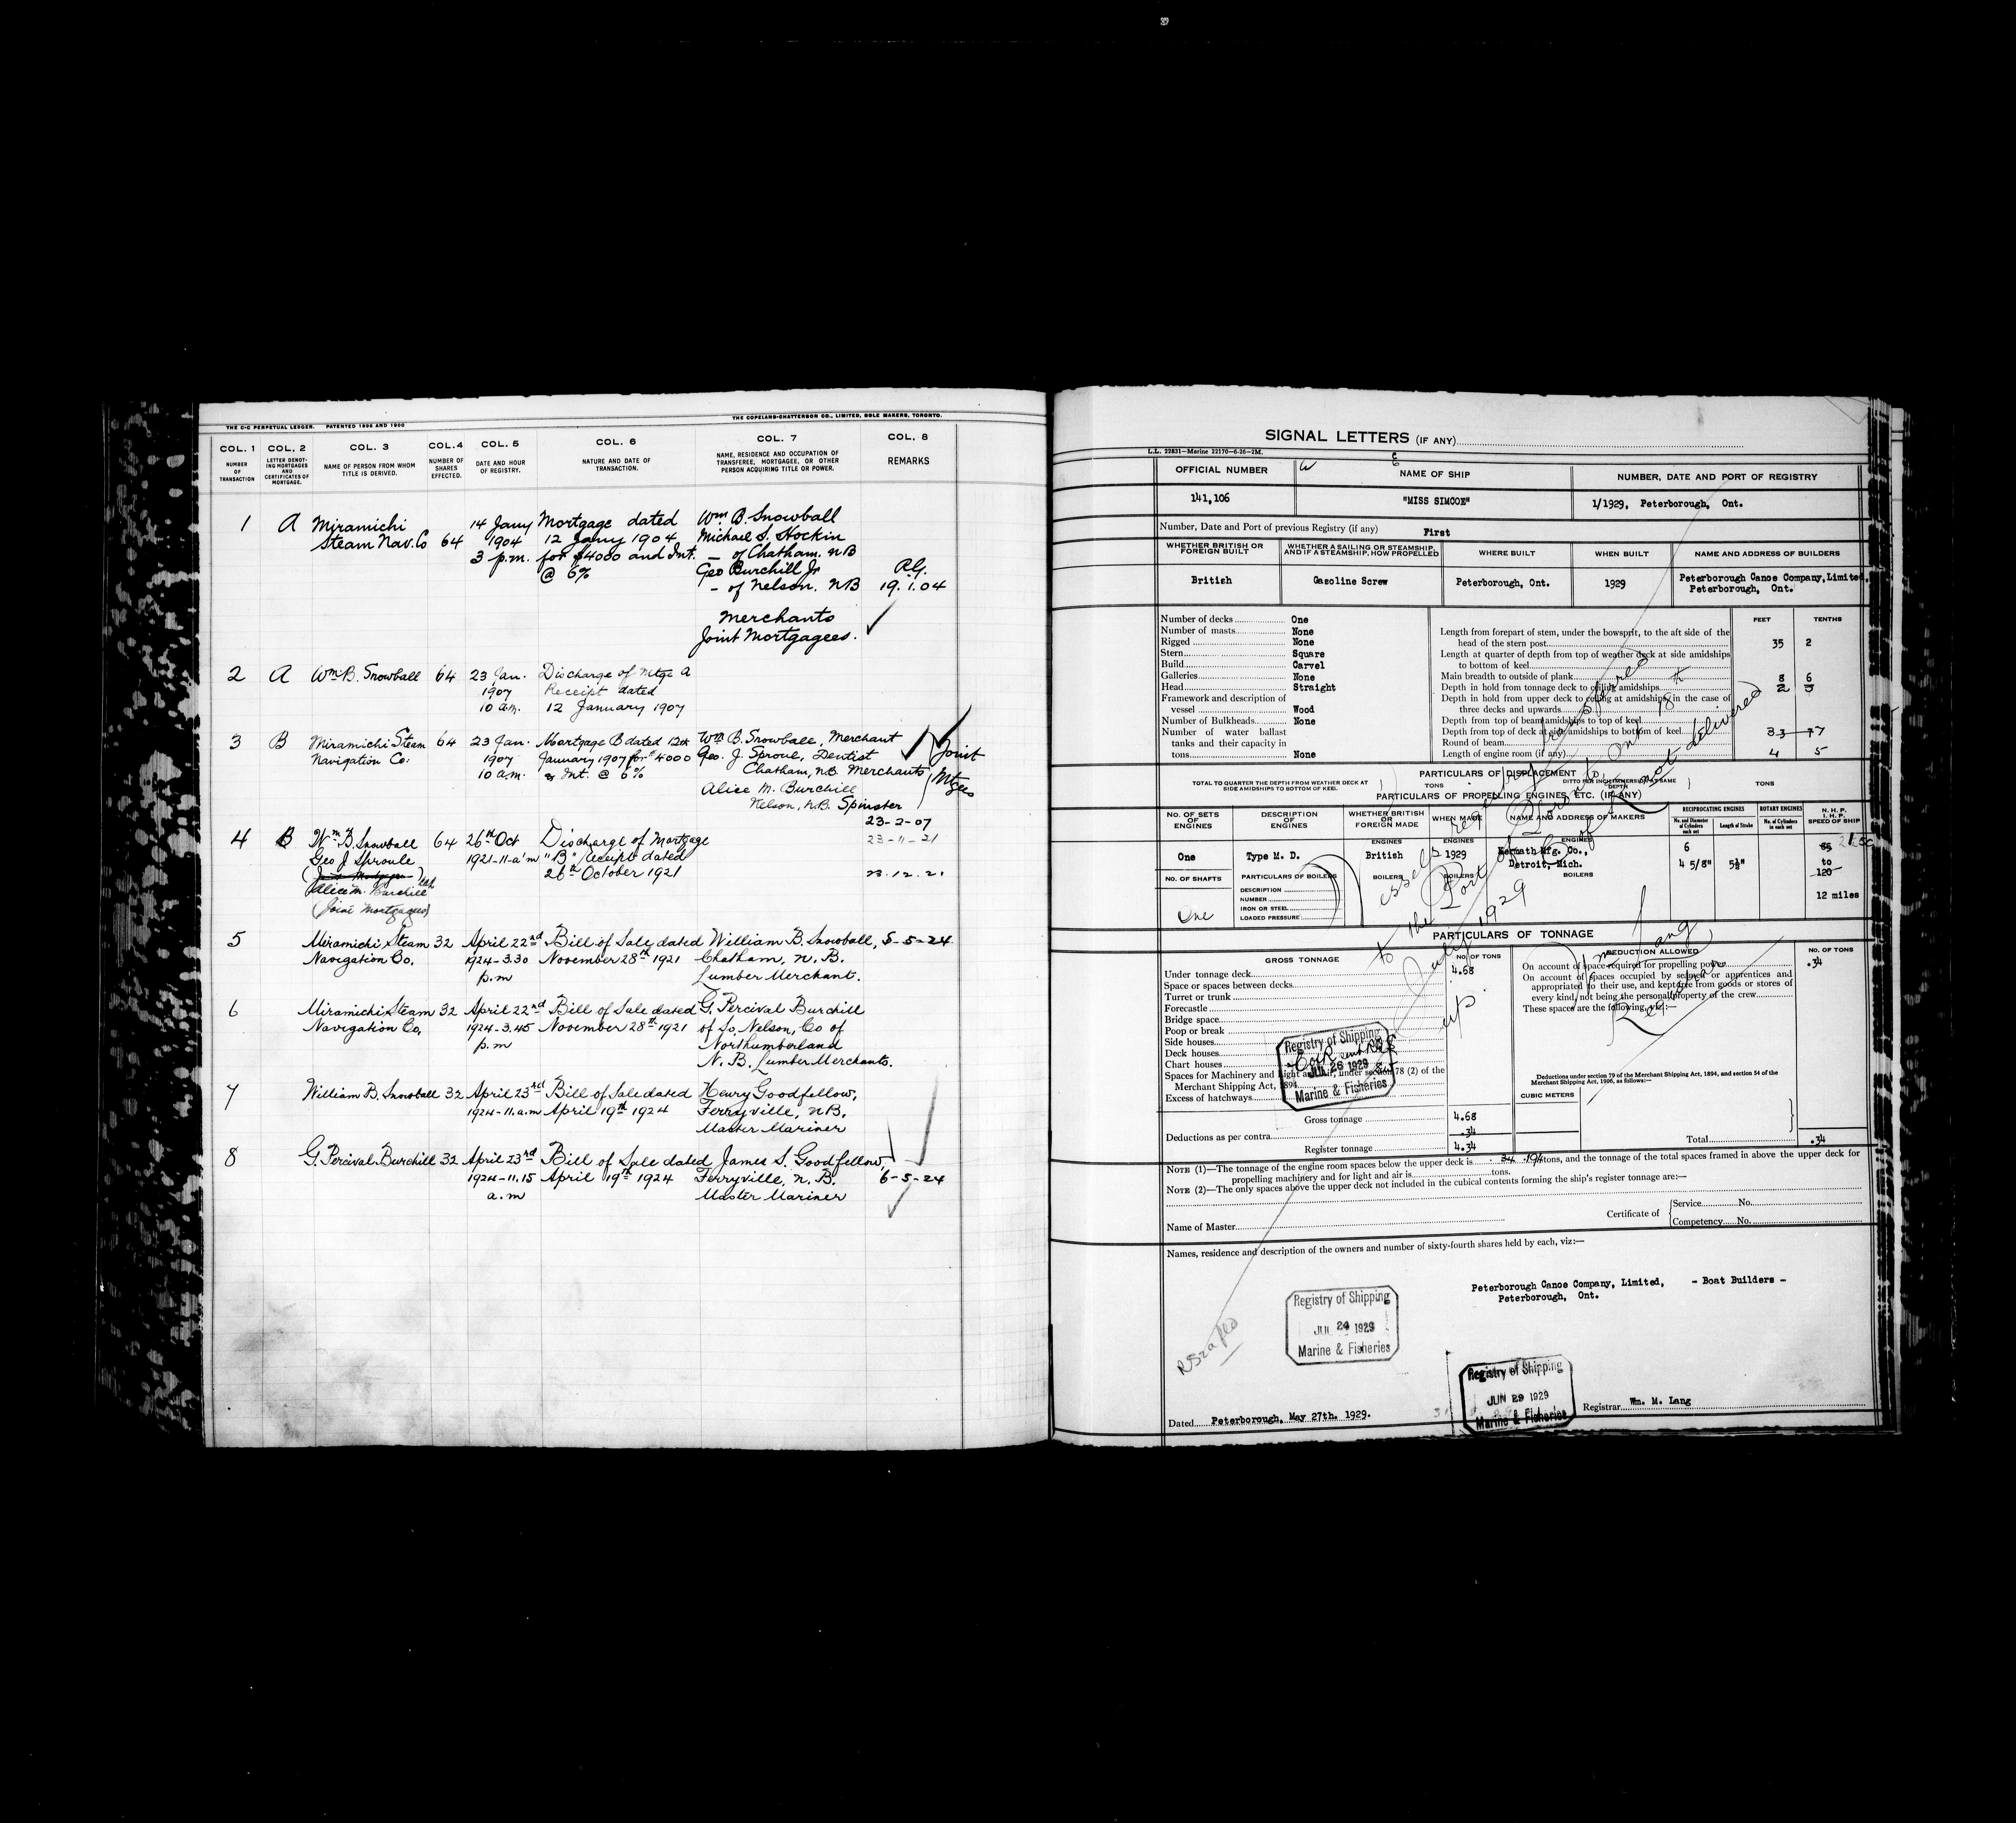 THE C-C PERPETUAL LEDGER. PATENTED 1896 AND 1900
THE COPELAND-CHATTERSON CO., LIMITED, SOLE MAKERS, TORONTO.
COL. 1 COL. 2 COL. 3 COL. 4 COL. 5 COL. 6 COL. 7 COL. 8
NUMBER OF TRANSACTION
LETTER DENOTING MORTGAGES AND CERTIFICATES OF MORTGAGE.
NAME OF PERSON FROM WHOM TITLE IS DERIVED.
NUMBER OF SHARES EFFECTED.
DATE AND HOUR OF REGISTRY.
NATURE AND DATE OF TRANSACTION.
NAME, RESIDENCE AND OCCUPATION OF TRANSFEREE, MORTGAGEE, OR OTHER PERSON ACQUIRING TITLE OR POWER.
REMARKS
1 A Miramichi 14 Jany Mortgage dated Wm B. Snowball
Steam Nav. Co 64 1904 12 Jany 1904 Michael S. Hockin
3 p.m. for $4000 and Int. — of Chatham. NB
@ 6% Geo Burchill Jr
— of Nelson. NB 19.1.04
Merchants
Joint Mortgagees.
2 A Wm B. Snowball 64 23 Jan. Discharge of Mtge A
1907 Receipt dated
10 a.m. 12 January 1907
3 B Miramichi Steam 64 23 Jan. Mortgage B dated 12th Wm B. Snowball, Merchant
Navigation Co: 1907 January 1907 for $4000 Geo. J. Sproul, Dentist Joint
10 a.m. & Int. @ 6% Chatham, N.B. Merchants Mtgees
Alice M. Burchill
Nelson, N.B. Spinster
23-2-07
4 B Wm B. Snowball 64 26th Oct Discharge of Mortgage 23-11-21
Geo J Sproule 1921-11-a'm "B" receipt dated
26th October 1921 23.12.21
Alice M. Burchill
(Joint Mortgagees)
5 Miramichi Steam 32 April 22nd Bill of Sale dated William B. Snowball, 5-5-24
Navigation Co. 1924-3.30 November 28th 1921 Chatham, N. B.
p.m Lumber Merchant.
6 Miramichi Steam 32 April 22nd Bill of Sale dated G. Percival Burchill
Navigation Co, 1924-3.45 November 28th 1921 of So. Nelson, Co of
p.m Northumberland
N. B. Lumber Merchants.
7 William B. Snowball 32 April 23rd Bill of Sale dated Henry Goodfellow,
1924-11.a.m April 19th 1924 Ferryville, N.B.
Master Mariner
8 G. Percival Burchill 32 April 23rd Bill of Sale dated James S. Goodfellow,
1924-11.15 April 19th 1924 Ferryville, N. B. 6-5-24
a.m Master Mariner
SIGNAL LETTERS (IF ANY)
L.L. 22831—Marine 22170—6-26—2M.
OFFICIAL NUMBER NAME OF SHIP NUMBER, DATE AND PORT OF REGISTRY
141,106 "MISS SIMCOE" 1/1929, Peterborough, Ont.
Number, Date and Port of previous Registry (if any) First
WHETHER BRITISH OR FOREIGN BUILT
WHETHER A SAILING OR STEAMSHIP, AND IF A STEAMSHIP, HOW PROPELLED
WHERE BUILT WHEN BUILT NAME AND ADDRESS OF BUILDERS
British Gasoline Screw Peterborough, Ont. 1929 Peterborough Canoe Company, Limited,
Peterborough, Ont.
Number of decks One
Number of masts None
Rigged None
Stern Square
Build Carvel
Galleries None
Head Straight
Framework and description of
vessel Wood
Number of Bulkheads None
Number of water ballast
tanks and their capacity in
tons None
FEET TENTHS
Length from forepart of stem, under the bowsprit, to the aft side of the
head of the stern post 35 2
Length at quarter of depth from top of weather deck at side amidships
to bottom of keel
Main breadth to outside of plank 8 6
Depth in hold from tonnage deck to ceiling amidships 2
Depth in hold from upper deck to ceiling at amidships, in the case of
three decks and upwards
Depth from top of beam amidships to top of keel
Depth from top of deck at side amidships to bottom of keel
Round of beam
Length of engine room (if any) 4 5
vessels registry transferred
to the Port of Toronto Ont 18th
July 1929
C of R not delivered
Wm Lang
Registrar
PARTICULARS OF DISPLACEMENT
TOTAL TO QUARTER THE DEPTH FROM WEATHER DECK AT SIDE AMIDSHIPS TO BOTTOM OF KEEL.
TONS
DITTO PER INCH IMMERSION AT SAME DEPTH
TONS
PARTICULARS OF PROPELLING ENGINES, ETC. (IF ANY)
NO. OF SETS OF ENGINES
DESCRIPTION OF ENGINES
WHETHER BRITISH OR FOREIGN MADE
WHEN MADE
NAME AND ADDRESS OF MAKERS
RECIPROCATING ENGINES
No. and Diameter of Cylinders each set
Length of Stroke
ROTARY ENGINES
No. of Cylinders in each set
N. H. P. I. H. P. SPEED OF SHIP
ENGINES ENGINES ENGINES 6
One Type M. D. British 1929 Kermath Mfg. Co.,
Detroit, Mich. 4 5/8" 5½" to
120
NO. OF SHAFTS PARTICULARS OF BOILERS BOILERS BOILERS BOILERS
DESCRIPTION
NUMBER 12 miles
IRON OR STEEL
One LOADED PRESSURE
PARTICULARS OF TONNAGE
GROSS TONNAGE NO. OF TONS DEDUCTION ALLOWED NO. OF TONS
Under tonnage deck 4.68
Space or spaces between decks
Turret or trunk
Forecastle
Bridge space
Poop or break
Side houses
Deck houses
Chart houses
Spaces for Machinery and light and air, under section 78 (2) of the
Merchant Shipping Act, 1894
Excess of hatchways
On account of space required for propelling power .34
On account of spaces occupied by seamen or apprentices and
appropriated to their use, and kept free from goods or stores of
every kind, not being the personal property of the crew
These spaces are the following, viz:—
Registry of Shipping
JUN 26 1929
Marine & Fisheries
Deductions under section 79 of the Merchant Shipping Act, 1894, and section 54 of the
Merchant Shipping Act, 1906, as follows:—
CUBIC METERS
Gross tonnage 4.68
Deductions as per contra .34
Register tonnage 4.34
Total .34
NOTE (1)—The tonnage of the engine room spaces below the upper deck is tons, and the tonnage of the total spaces framed in above the upper deck for
propelling machinery and for light and air is tons.
NOTE (2)—The only spaces above the upper deck not included in the cubical contents forming the ship's register tonnage are:—
Name of Master
Certificate of
Service No.
Competency No.
Names, residence and description of the owners and number of sixty-fourth shares held by each, viz:—
Peterborough Canoe Company, Limited, - Boat Builders -
Peterborough, Ont.
Registry of Shipping
JUL 24 1929
Marine & Fisheries
Registry of Shipping
JUN 29 1929
Marine & Fisheries
Dated Peterborough, May 27th. 1929.
Registrar Wm. M. Lang